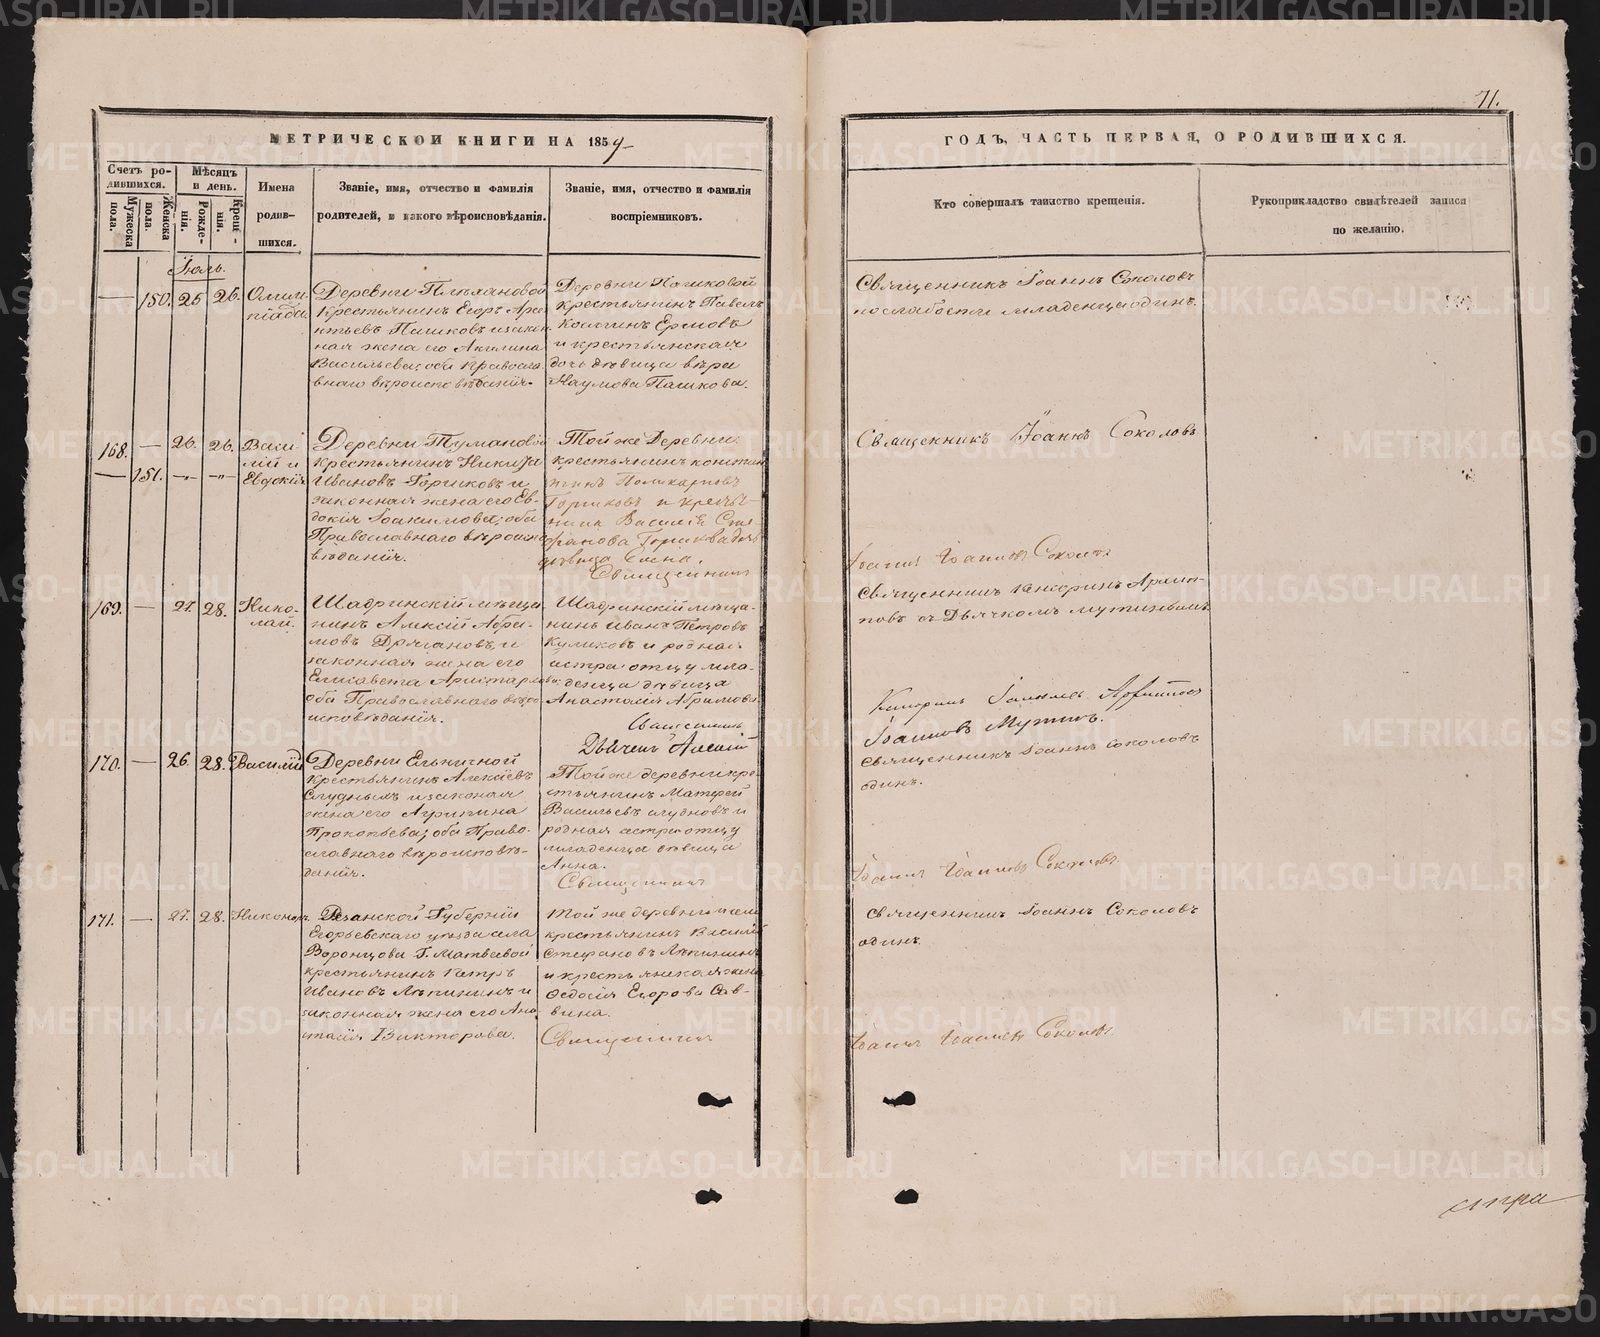 71.
МЕТРИЧЕСКОЙ КНИГИ НА 1859
ГОДЪ, ЧАСТЬ ПЕРВАЯ, О РОДИВШИХСЯ.
Счетъ ро-
дившихся.
Мужеска
пола.
Женска
пола.
Мѣсяцъ
и день.
Рожде-
нія.
Креще-
нія.
Имена
родив-
шихся.
Званіе, имя, отчество и фамилія
родителей, и какого вѣроисповѣданія.
Званіе, имя, отчество и фамилія
воспріемниковъ.
Кто совершалъ таинство крещенія.
Рукоприкладство свидѣтелей записи
по желанію.
Іюль.
— 150. 25 26. Олим-
піада
Деревни Плѣхановой
крестьянинъ Егоръ
Пашковъ и закон
ная жена его Акилина
Васильева; оба Правосла
внаго вѣроисповѣданія.
Деревни Пашковой
крестьянинъ Павелъ
Ермовъ
и крестьянская
дочь дѣвица Вѣра
Наумова Пашкова.
Священникъ Іоаннъ Соколовъ
по слабости младенца одинъ.
168. — 26. 26. Васи-
лій и
— 151. -„- -„- Евдокія
Деревни Тумановой
крестьянинъ Никита
Ивановъ Горшковъ и
законная жена его Ев-
докія Іоакимова; оба
Православнаго вѣроиспо
вѣданія.
Той же Деревни
крестьянинъ констан
тинъ Поликарповъ
Горшковъ и
Василія Сте-
фанова
дѣвица Елена.
Священникъ
Священникъ Іоаннъ Соколовъ
Іоаннъ Іоанновъ Соколовъ
169. — 27. 28. Нико-
лай.
Шадринскій мѣща
нинъ Алексій Абра-
мовъ Дрягановъ, и
законная жена его
Елисавета Аристархова
оба Православнаго вѣро
исповѣданія.
Шадринскій мѣща-
нинъ Иванъ Петровъ
Куликовъ и родная
сестра отцу мла-
денца дѣвица
Анастасія Абрамова.
Священникъ
Дьячекъ Алексій
Священникъ Архип-
повъ съ Дьячкомъ Мутинымъ.
Іоанновъ Мутинъ.
170. — 26. 28. Василій
Деревни Ельничной
крестьянинъ Алексѣевъ
Слудныхъ и законая
жена его Агрипина
Прокопьева; оба Право-
славнаго вѣроисповѣ-
данія.
Той же деревни кре-
стьянинъ Матфей
Васильевъ слудновъ и
родная сестра отцу
младенца дѣвица
Анна.
Священникъ
Священникъ Іоаннъ Соколовъ
одинъ.
Іоаннъ Іоанновъ Соколовъ
171. — 27. 28. Никоноръ.
Рязанской Губерніи
Егорьевскаго уѣзда села
Воронцова Г. Матвѣевой
крестьянинъ Петръ
Ивановъ Лѣпинінъ и
законная жена его Ана
стасія Викторова.
Той же деревни и села
крестьянинъ Василій
Стефановъ Лѣпининъ
и крестьянская жена
Федосія Егорова Сав-
вина.
Священникъ
Священникъ Іоаннъ Соколовъ
одинъ.
Іоаннъ Іоанновъ Соколовъ
METRIKI.GASO-URAL.RU